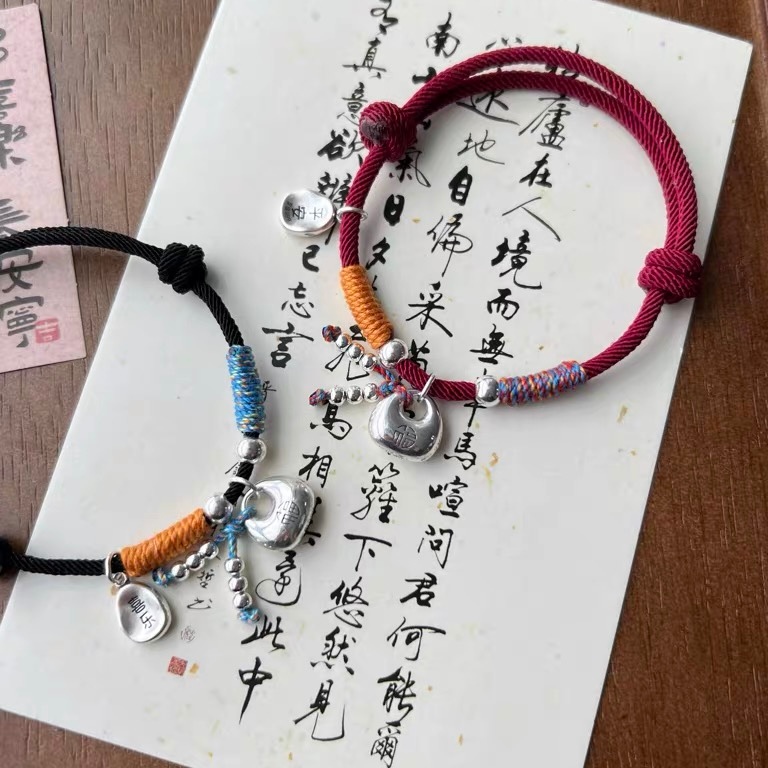 廬在人境而無馬喧問君何能爾
心遠地自偏采籬下悠然見
南氣日夕飛鳥相還此中
真意欲辨已忘言
喜樂 長安寧
平安
福
福
喜乐